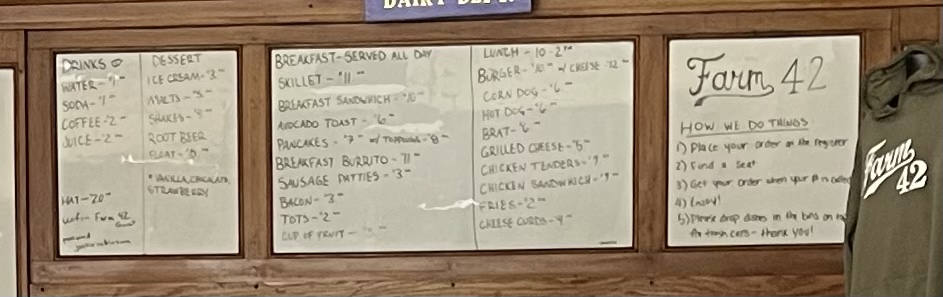 DAIRY DEPT.
DRINKS
WATER-
SODA-
COFFEE-2
JUICE-2
HAT-20
Farm 42
DESSERT
ICE CREAM-3
MALTS-
SHAKES-
ROOT BEER
FLOAT-
*VANILLA, CHOCOLATE,
STRAWBERRY
BREAKFAST-SERVED ALL DAY
SKILLET-11
BREAKFAST SANDWHICH-10
AVOCADO TOAST-6
PANCAKES-7 w/ TOPPINGS-8
BREAKFAST BURRITO-11
SAUSAGE PATTIES-3
BACON-3
TOTS-2
CUP OF FRUIT-
LUNCH-10-2
BURGER-10 w/ CHEESE-12
CORN DOG-6
HOT DOG-6
BRAT-8
GRILLED CHEESE-
CHICKEN TENDERS-9
CHICKEN SANDWHICH-9
FRIES-2
CHEESE CURDS-9
Farm 42
HOW WE DO THINGS
1) Place your order at the register
2) Find a seat
3) Get your order when your # is called
4) Enjoy!
5) Please drop dishes in the bins on
the trash cans-thank you!
Farm
42